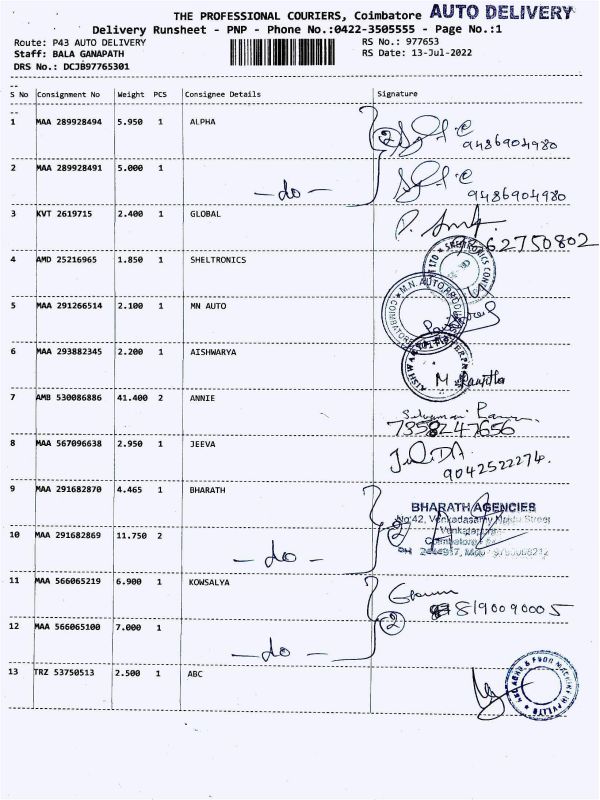 THE PROFESSIONAL COURIERS, Coimbatore AUTO DELIVERY
Delivery Runsheet - PNP - Phone No.:0422-3505555 - Page No.:1
Route: P43 AUTO DELIVERY RS No.: 977653
Staff: BALA GANAPATH RS Date: 13-Jul-2022
DRS No.: DCJB97765301
S No Consignment No Weight PCS Consignee Details Signature
1 MAA 289928494 5.950 1 ALPHA 2
9486904980
2 MAA 289928491 5.000 1
-do-
9486904980
3 KVT 2619715 2.400 1 GLOBAL
62750802
4 AMD 25216965 1.850 1 SHELTRONICS
5 MAA 291266514 2.100 1 MN AUTO
6 MAA 293882345 2.200 1 AISHWARYA
7 AMB 530086886 41.400 2 ANNIE
7358247656
8 MAA 567096638 2.950 1 JEEVA
9042522274.
9 MAA 291682870 4.465 1 BHARATH
BHARATH AGENCIES
No:42, Venkadasamy Naidu Street
10 MAA 291682869 11.750 2 2
-do-
11 MAA 566065219 6.900 1 KOWSALYA
8190090005
12 MAA 566065100 7.000 1 2
-do-
13 TRZ 53750513 2.500 1 ABC